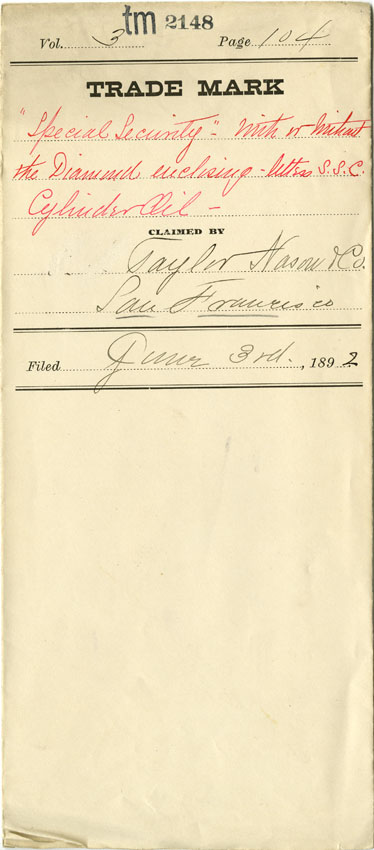 tm 2148
Vol. 3 Page 104
TRADE MARK
"Special Security" - with or without
the Diamond enclosing - letters S.S.C.
Cylinder Oil -
CLAIMED BY
Taylor Nason & Co.
San Francisco
Filed June 3rd. , 1892